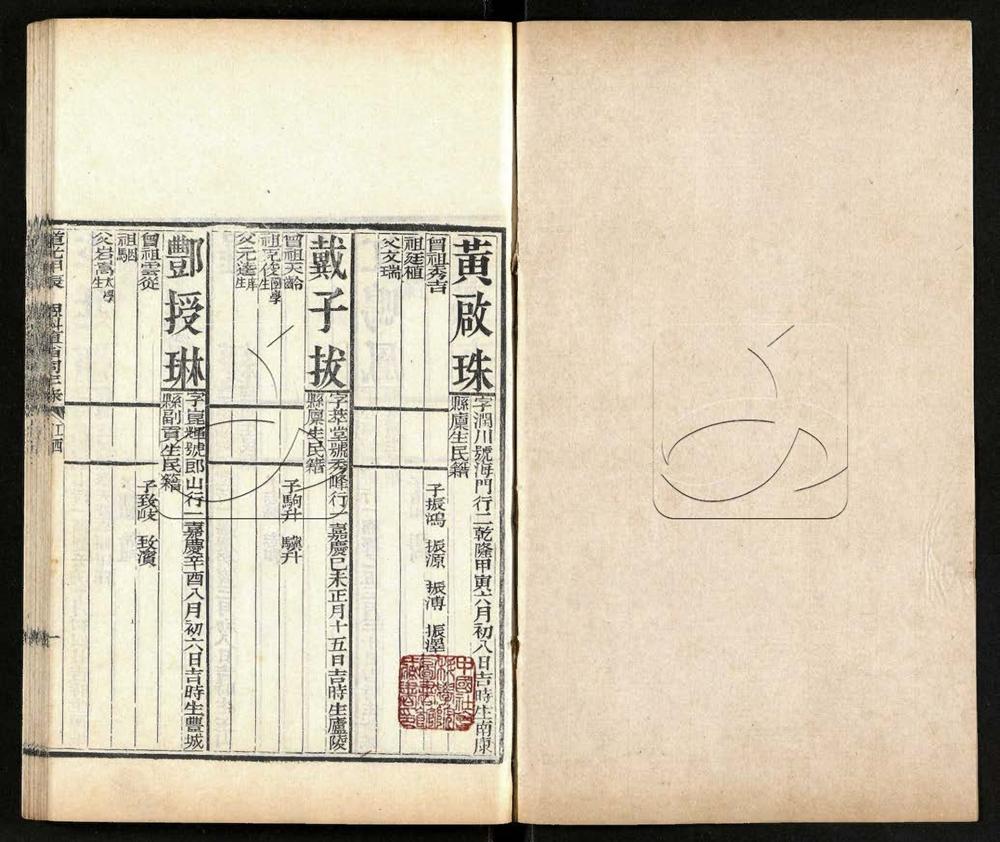 黃啟珠
字潤川號海門行二乾隆甲寅六月初八日吉時生南康
縣廩生民籍
曾祖秀吉
祖廷植
父文瑞
子振鴻 振源 振溥 振澤
戴子拔
字萃堂號秀峰行一嘉慶己未正月十五日吉時生廬陵
縣廩生民籍
曾祖天齡
祖克俊國學生
父元逵庠生
子駒升 驥升
酆授琳
字崑輝號郎山行一嘉慶辛酉八月初六日吉時生豐城
縣副貢生民籍
曾祖雲從
祖駰
父岩嵩太學生
子致岐 致濱
道光甲辰 恩科直省同年錄 江西
一